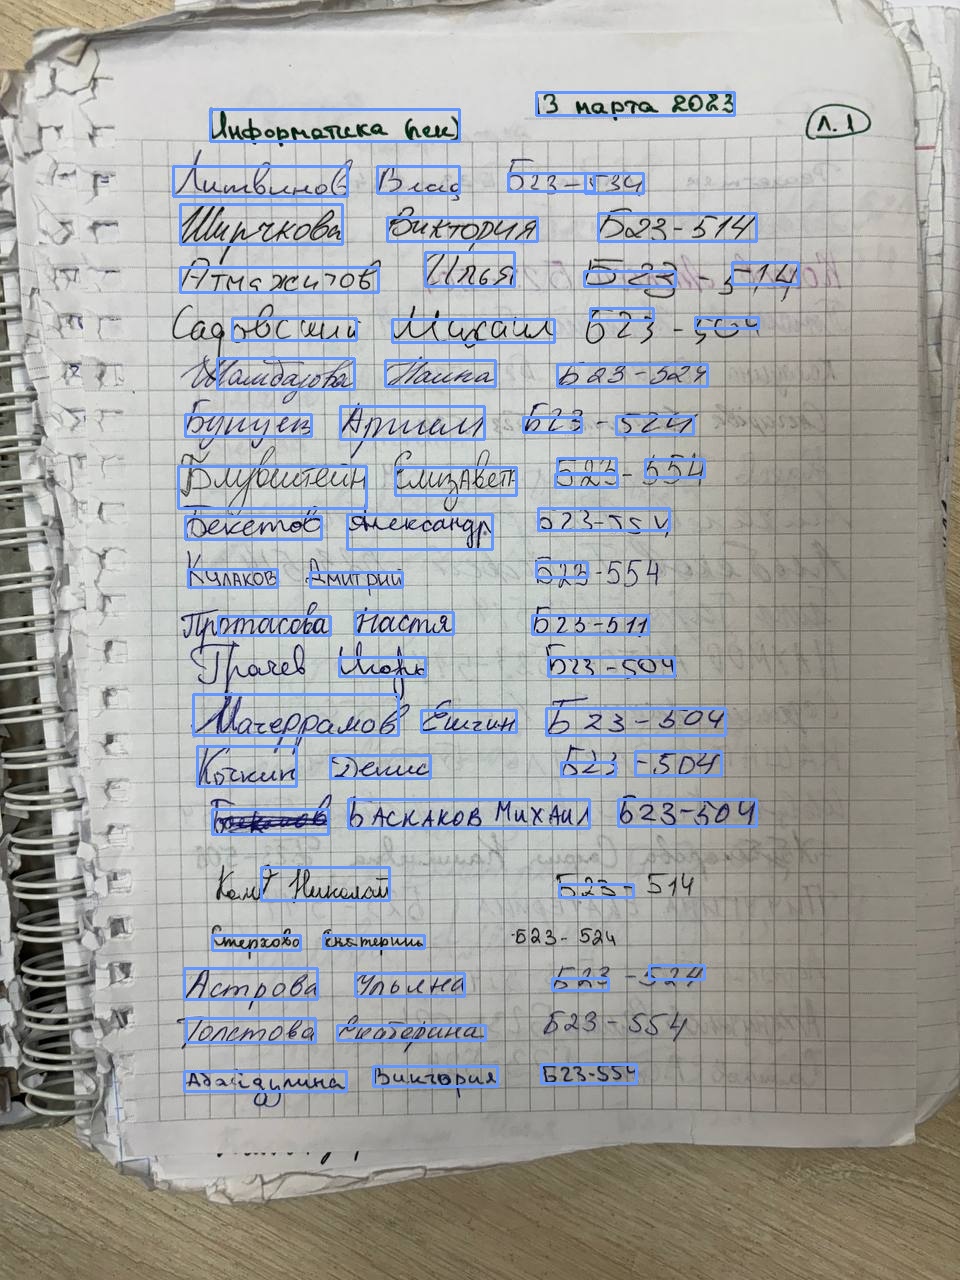 3 марта 2023
Информатика (лек) Л.1
Литвинов Влад Б23-534
Ширчкова Виктория Б23-514
Атмажитов Илья Б23-514
Садовский Михаил Б23-504
Шамбазова Наина Б23-524
Бунуев Артем Б23-524
Блувштейн Елизавета Б23-554
Бекетов Александр Б23-554
Кулаков Дмитрий Б23-554
Протасова Настя Б23-511
Грачев Игорь Б23-504
Магеррамов Ельчин Б23-504
Кочкин Денис Б23-504
БАСКАКОВ МИХАИЛ Б23-504
Николай Б23-514
Екатерина Б23-524
Астрова Ульяна Б23-524
Толстова Екатерина Б23-554
Абайдулина Виктория Б23-554